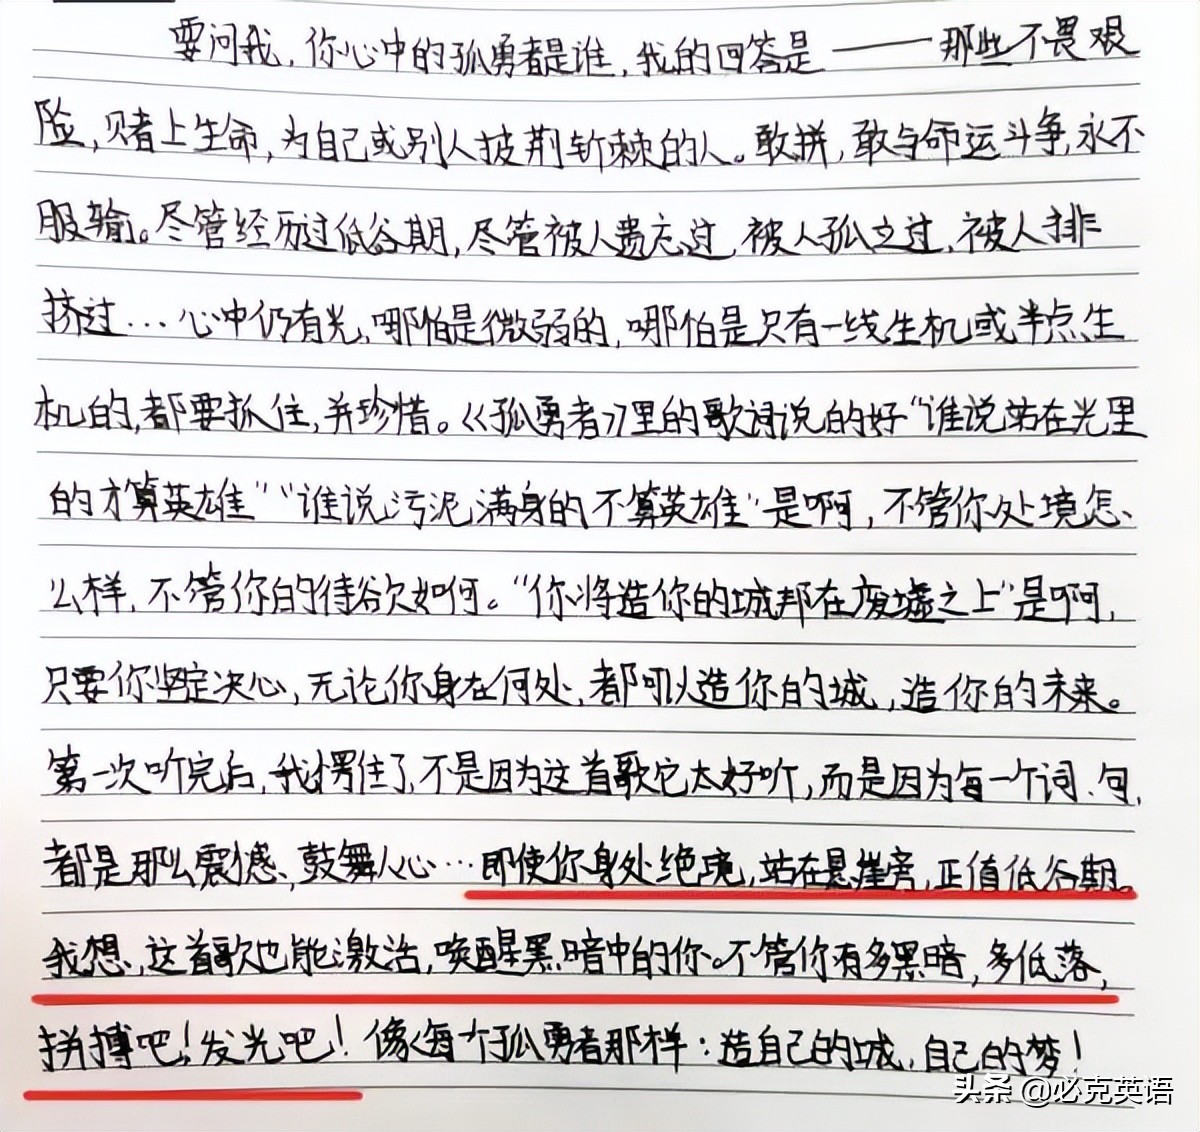 要问我，你心中的孤勇者是谁，我的回答是——那些不畏艰
险，赌上生命，为自己或别人披荆斩棘的人。敢拼，敢与命运斗争，永不
服输。尽管经历过低谷期，尽管被人遗忘过，被人孤立过，被人排
挤过…心中仍有光，哪怕是微弱的，哪怕是只有一线生机或半点生
机的，都要抓住，并珍惜。《孤勇者》里的歌词说的好“谁说站在光里
的才算英雄”“谁说污泥满身的不算英雄”是啊，不管你处境怎
么样，不管你的待欲如何。“你将造你的城邦在废墟之上”是啊，
只要你坚定决心，无论你身在何处，都可以造你的城，造你的未来。
第一次听完后，我愣住了，不是因为这首歌它太好听，而是因为每一个词、句，
都是那么震憾、鼓舞人心…即使你身处绝境，站在悬崖旁，正值低谷期。
我想，这首歌也能激活，唤醒黑暗中的你。不管你有多黑暗，多低落，
拼搏吧！发光吧！像每个孤勇者那样：造自己的城，自己的梦！
头条 @必克英语